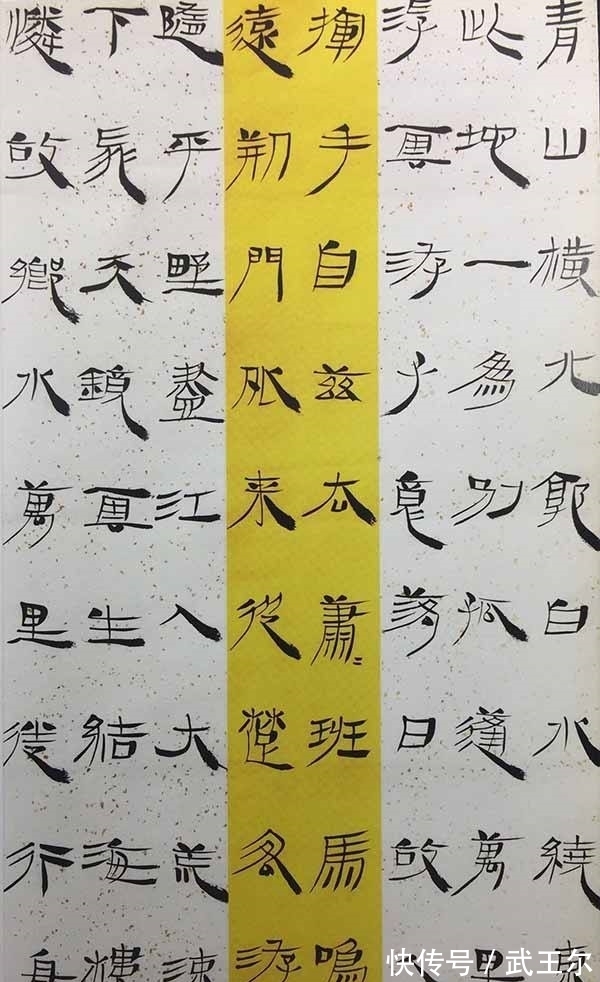 青山橫北郭白水繞東
此地一為別孤蓬萬里
浮雲游子意落日故人
揮手自茲去蕭〻班馬鳴
遠荊門外来從楚國游
隨平野盡江入大荒流
下飛天鏡雲生結海樓
憐故鄉水萬里送行舟
快传号 / 武王尔